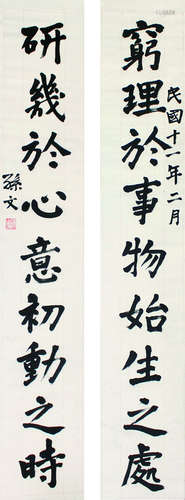 窮理於事物始生之處
民國十一年二月
研幾於心意初動之時
孫文